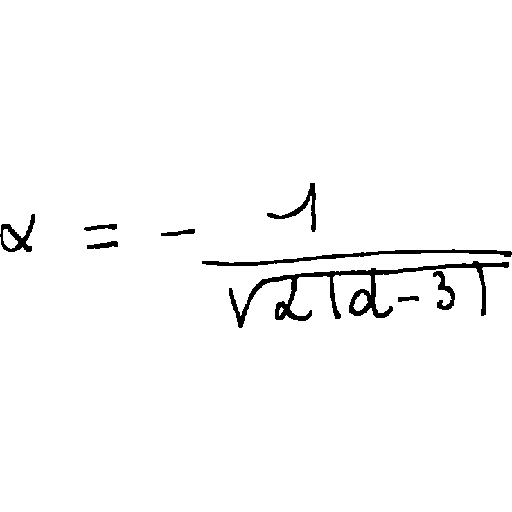 \alpha = - \frac{1}{\sqrt{2|d-3|}}